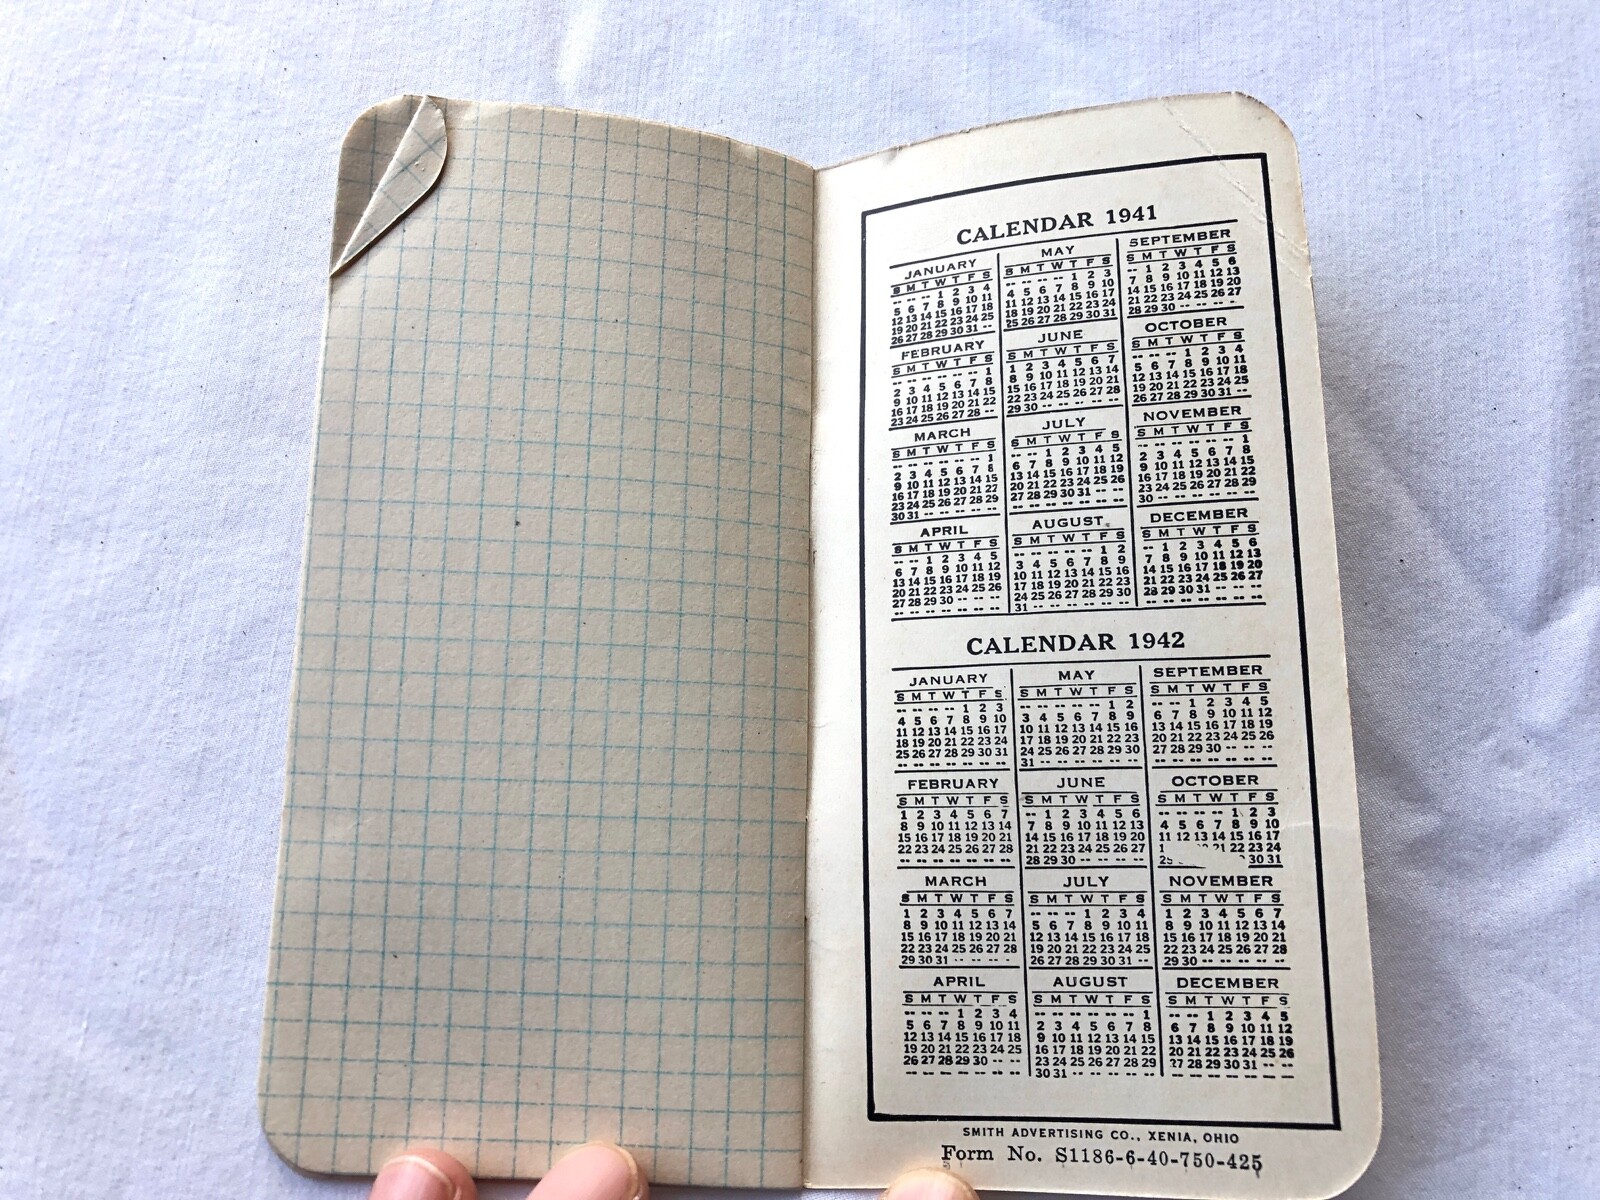 CALENDAR 1941
JANUARY
S M T W T F S
-- -- -- 1 2 3 4
5 6 7 8 9 10 11
12 13 14 15 16 17 18
19 20 21 22 23 24 25
26 27 28 29 30 31 --
FEBRUARY
S M T W T F S
-- -- -- -- -- -- 1
2 3 4 5 6 7 8
9 10 11 12 13 14 15
16 17 18 19 20 21 22
23 24 25 26 27 28 --
MARCH
S M T W T F S
-- -- -- -- -- -- 1
2 3 4 5 6 7 8
9 10 11 12 13 14 15
16 17 18 19 20 21 22
23 24 25 26 27 28 29
30 31 -- -- -- -- --
APRIL
S M T W T F S
-- -- 1 2 3 4 5
6 7 8 9 10 11 12
13 14 15 16 17 18 19
20 21 22 23 24 25 26
27 28 29 30 -- -- --
-- -- -- -- -- -- --
MAY
S M T W T F S
-- -- -- -- 1 2 3
4 5 6 7 8 9 10
11 12 13 14 15 16 17
18 19 20 21 22 23 24
25 26 27 28 29 30 31
JUNE
S M T W T F S
1 2 3 4 5 6 7
8 9 10 11 12 13 14
15 16 17 18 19 20 21
22 23 24 25 26 27 28
29 30 -- -- -- -- --
JULY
S M T W T F S
-- -- 1 2 3 4 5
6 7 8 9 10 11 12
13 14 15 16 17 18 19
20 21 22 23 24 25 26
27 28 29 30 31 -- --
-- -- -- -- -- -- --
AUGUST
S M T W T F S
-- -- -- -- -- 1 2
3 4 5 6 7 8 9
10 11 12 13 14 15 16
17 18 19 20 21 22 23
24 25 26 27 28 29 30
31 -- -- -- -- -- --
SEPTEMBER
S M T W T F S
-- 1 2 3 4 5 6
7 8 9 10 11 12 13
14 15 16 17 18 19 20
21 22 23 24 25 26 27
28 29 30 -- -- -- --
OCTOBER
S M T W T F S
-- -- -- 1 2 3 4
5 6 7 8 9 10 11
12 13 14 15 16 17 18
19 20 21 22 23 24 25
26 27 28 29 30 31 --
NOVEMBER
S M T W T F S
-- -- -- -- -- -- 1
2 3 4 5 6 7 8
9 10 11 12 13 14 15
16 17 18 19 20 21 22
23 24 25 26 27 28 29
30 -- -- -- -- -- --
DECEMBER
S M T W T F S
-- 1 2 3 4 5 6
7 8 9 10 11 12 13
14 15 16 17 18 19 20
21 22 23 24 25 26 27
28 29 30 31 -- -- --
-- -- -- -- -- -- --
CALENDAR 1942
JANUARY
S M T W T F S
-- -- -- -- 1 2 3
4 5 6 7 8 9 10
11 12 13 14 15 16 17
18 19 20 21 22 23 24
25 26 27 28 29 30 31
-- -- -- -- -- -- --
FEBRUARY
S M T W T F S
1 2 3 4 5 6 7
8 9 10 11 12 13 14
15 16 17 18 19 20 21
22 23 24 25 26 27 28
-- -- -- -- -- -- --
MARCH
S M T W T F S
1 2 3 4 5 6 7
8 9 10 11 12 13 14
15 16 17 18 19 20 21
22 23 24 25 26 27 28
29 30 31 -- -- -- --
APRIL
S M T W T F S
-- -- -- 1 2 3 4
5 6 7 8 9 10 11
12 13 14 15 16 17 18
19 20 21 22 23 24 25
26 27 28 29 30 -- --
-- -- -- -- -- -- --
MAY
S M T W T F S
-- -- -- -- -- 1 2
3 4 5 6 7 8 9
10 11 12 13 14 15 16
17 18 19 20 21 22 23
24 25 26 27 28 29 30
31 -- -- -- -- -- --
JUNE
S M T W T F S
-- 1 2 3 4 5 6
7 8 9 10 11 12 13
14 15 16 17 18 19 20
21 22 23 24 25 26 27
28 29 30 -- -- -- --
JULY
S M T W T F S
-- -- -- 1 2 3 4
5 6 7 8 9 10 11
12 13 14 15 16 17 18
19 20 21 22 23 24 25
26 27 28 29 30 31 --
AUGUST
S M T W T F S
-- -- -- -- -- -- 1
2 3 4 5 6 7 8
9 10 11 12 13 14 15
16 17 18 19 20 21 22
23 24 25 26 27 28 29
30 31 -- -- -- -- --
SEPTEMBER
S M T W T F S
-- -- 1 2 3 4 5
6 7 8 9 10 11 12
13 14 15 16 17 18 19
20 21 22 23 24 25 26
27 28 29 30 -- -- --
-- -- -- -- -- -- --
OCTOBER
S M T W T F S
-- -- -- -- 1 2 3
4 5 6 7 8 9 10
11 12 13 14 15 16 17
21 22 23 24
25 30 31
NOVEMBER
S M T W T F S
1 2 3 4 5 6 7
8 9 10 11 12 13 14
15 16 17 18 19 20 21
22 23 24 25 26 27 28
29 30 -- -- -- -- --
DECEMBER
S M T W T F S
-- -- 1 2 3 4 5
6 7 8 9 10 11 12
13 14 15 16 17 18 19
20 21 22 23 24 25 26
27 28 29 30 31 -- --
-- -- -- -- -- -- --
SMITH ADVERTISING CO., XENIA, OHIO
Form No. S1186-6-40-750-425